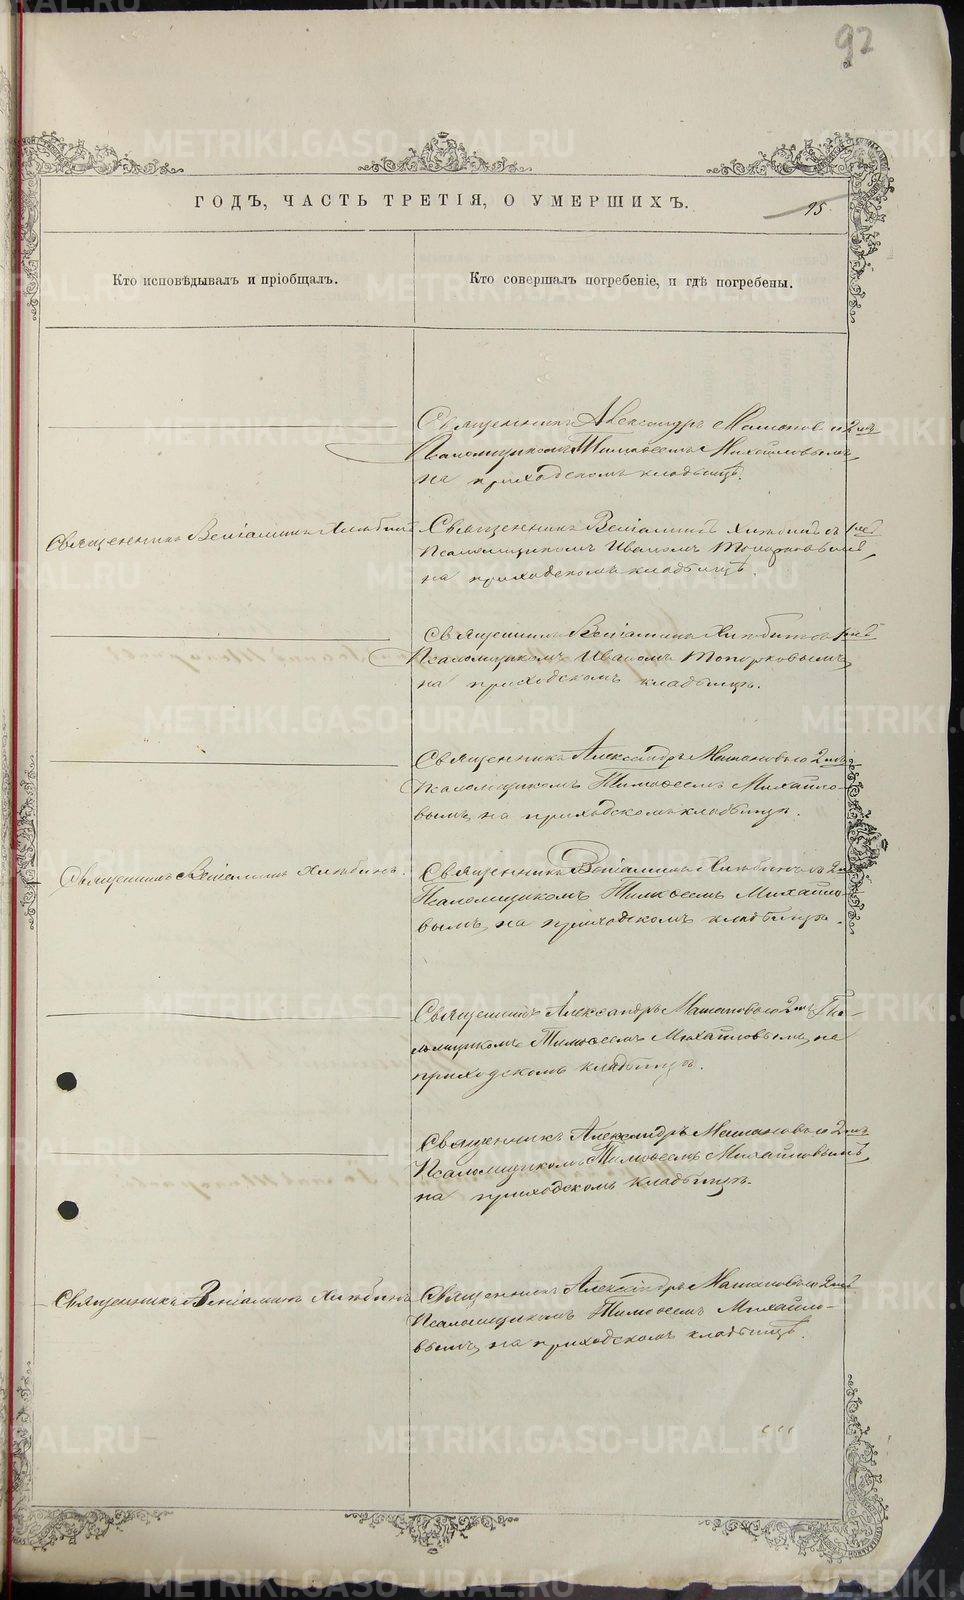 92
ГОДЪ, ЧАСТЬ ТРЕТІЯ, О УМЕРШИХЪ.
95
Кто исповѣдывалъ и пріобщалъ.
Кто совершалъ погребеніе, и гдѣ погребены.
Священникъ Александръ Мамановъ съ 2мъ
Псаломщикомъ Тимоѳеемъ Михайловымъ,
на приходскомъ кладбищѣ.
Священникъ Веніаминъ Хлѣбинъ
Священникъ Веніаминъ Хлѣбинъ съ 1мъ
Псаломщикомъ Иваномъ Топорковымъ,
на приходскомъ кладбищѣ.
Священникъ Веніаминъ Хлѣбинъ съ 1мъ
Псаломщикомъ Иваномъ Топорковымъ,
на приходскомъ кладбищѣ.
Священникъ Александръ Мамановъ съ 2мъ
Псаломщикомъ Тимоѳеемъ Михайло-
вымъ, на приходскомъ кладбищѣ.
Священникъ Веніаминъ Хлѣбинъ.
Священникъ Веніаминъ Хлѣбинъ съ 2мъ
Псаломщикомъ Тимоѳеемъ Михайло-
вымъ, на приходскомъ кладбищѣ.
Священникъ Александръ Мамановъ съ 2мъ Пса-
ломщикомъ Тимоѳеемъ Михайловымъ, на
приходскомъ кладбищѣ.
Священникъ Александръ Мамановъ съ 2мъ
Псаломщикомъ Тимоѳеемъ Михайловымъ,
на приходскомъ кладбищѣ.
Священникъ Веніаминъ Хлѣбинъ
Священникъ Александръ Мамановъ съ 2мъ
Псаломщикомъ Тимоѳеемъ Михайло-
вымъ, на приходскомъ кладбищѣ.
METRIKI.GASO-URAL.RU